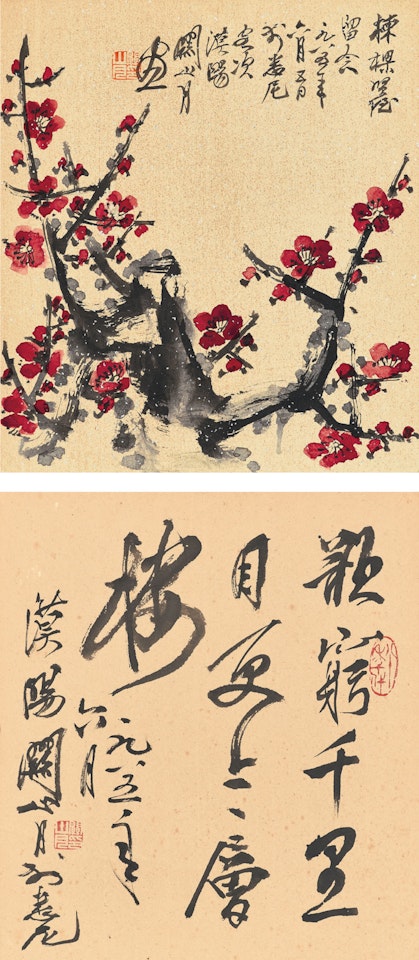 棟樑
留念
一九八五年
六月五日
於悉尼
客次
漠陽
關山月
画
欲窮千里
目更上一層
樓
一九八五年
六月
漠陽關山月於悉尼